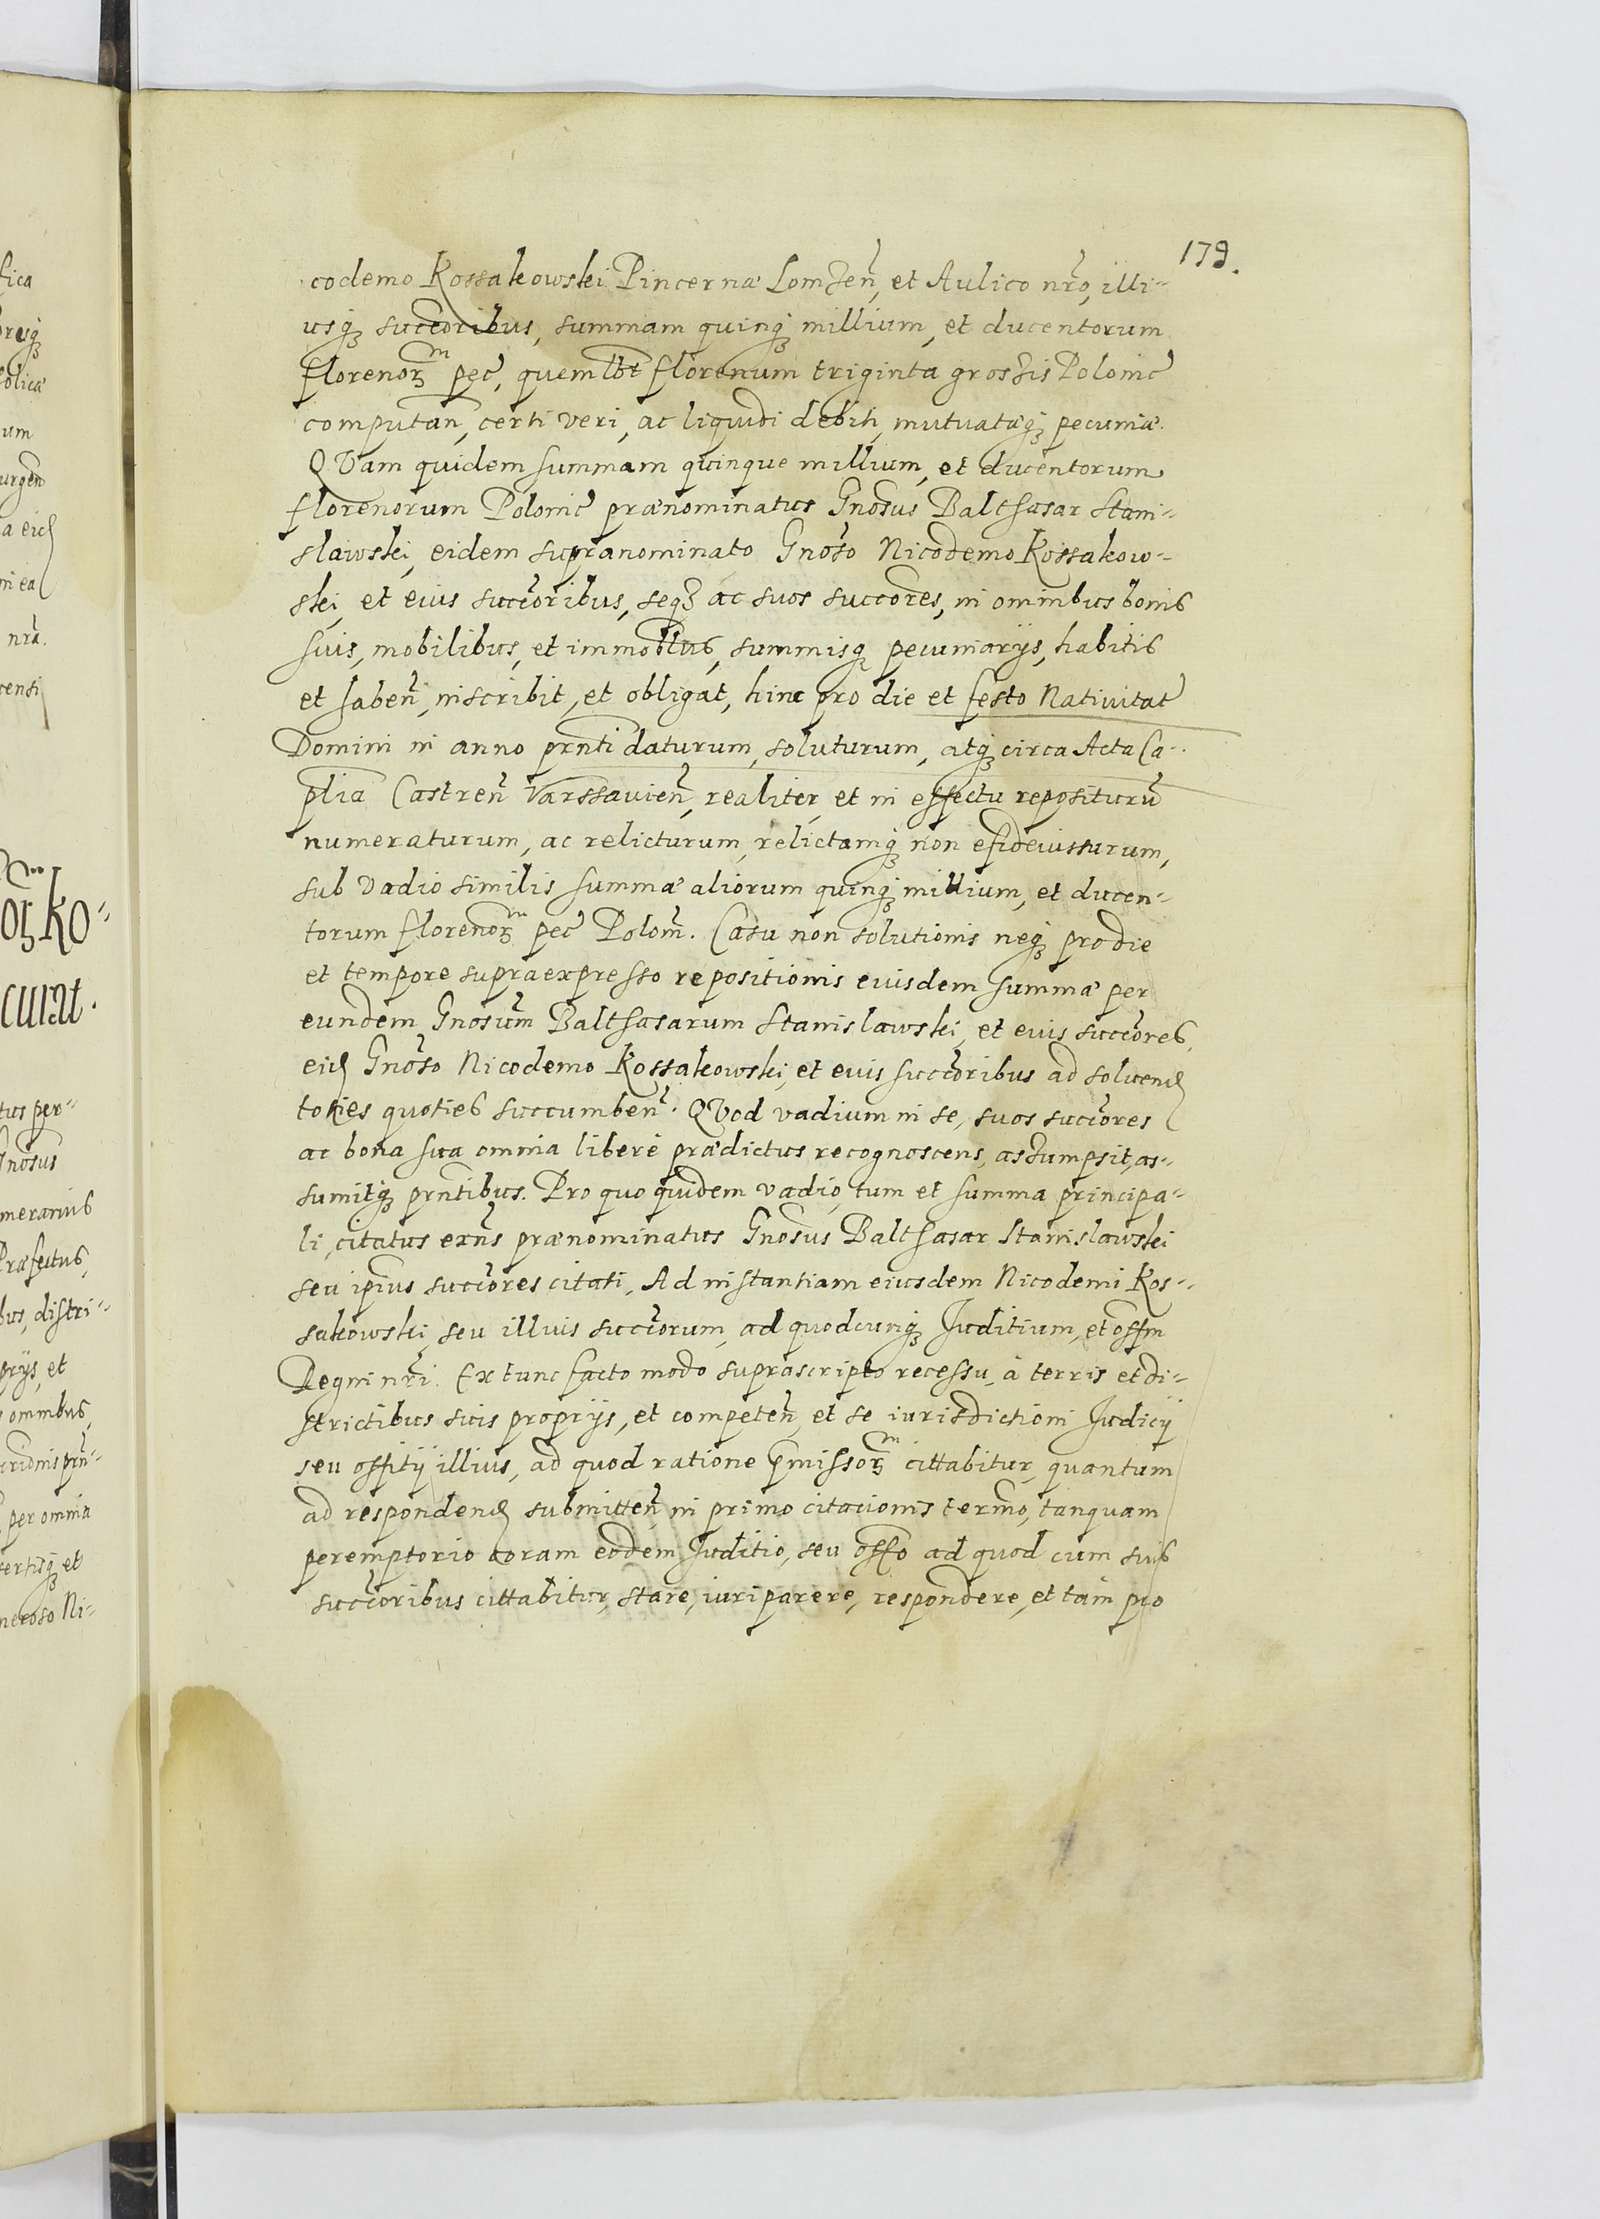 179.
codemo Kossakowski Pincernæ Lomzen̄, et Aulico nr̄o, illi-
usq́ȝ succōribus, summam quinq́ȝ millium, et ducentorum
florenorȝͫ pec̄, quemlb̄t florenum triginta grossis Polonic̄
computan̄, certi veri, ac liquidi debiti, mutuatæq́ȝ pecuniæ.
QVam quidem summam quinque millium, et ducentorum
florenorum Polonic̄ prænominatus Gnōsus Balthasar Stani-
slawski, eidem supranominato Gnōso Nicodemo Kossakow-
ski, et eius succōribus, seqȝ ac suos succōres, in omnibus bonis
suis, mobilibus, et immobl̄bus, summisq́ȝ pecuniarijs, habitis
et haben̄, inscribit, et obligat, hinc pro die et festo Nativitat̄
Domini in anno prn̄ti daturum, soluturum, atq́ȝ circa Acta Ca-
pl̄ia Castren̄ Varssauien̄, realiter, et in effectu repositurū
numeraturum, ac relicturum, relictamq́ȝ non efideiussurum,
sub vadio similis summæ aliorum quinq́ȝ millium, et ducen-
torum florenorȝͫ pec̄ Polon̄. Casu non solutionis neq́ȝ pro die
et tempore supraexpresso repositionis eiusdem summæ per
eundem Gnosūm Balthasarum Stanislawski, et eius succōres,
eid Gnōso Nicodemo Kossakowski, et eius succōribus ad soluend
toties quoties succumben̄. QVod vadium in se, suos succōres
ac bona sua omnia liberè prædictus recognoscens, assumpsit, as-
sumitq́ȝ prn̄tibus. Pro quo quidem vadio, tum et summa principa-
li, citatus exn̄s prænominatus Gnōsus Balthasar Stanislawski
seu ip̄ius succōres citati, Ad instantiam eiusdem Nicodemi Kos-
sakowski, seu illius succōrum, ad quodcunq́ȝ Juditium, et offm̄
Regni nr̄i. Ex tunc facto modo suprascripto recessu, à terris et di-
strictibus suis proprijs, et competen̄, et se iurisdictioni Judicij
seu offitij illius, ad quod ratione p̄missorȝͫ cittabitur, quantum
ad respondend submitten̄, in primo citacionis term̄o, tanquam
peremptorio coram eodem Juditio, seu off̄o ad quod cum suis
succōribus cittabitur, stare, iuri parere, respondere, et tam pro